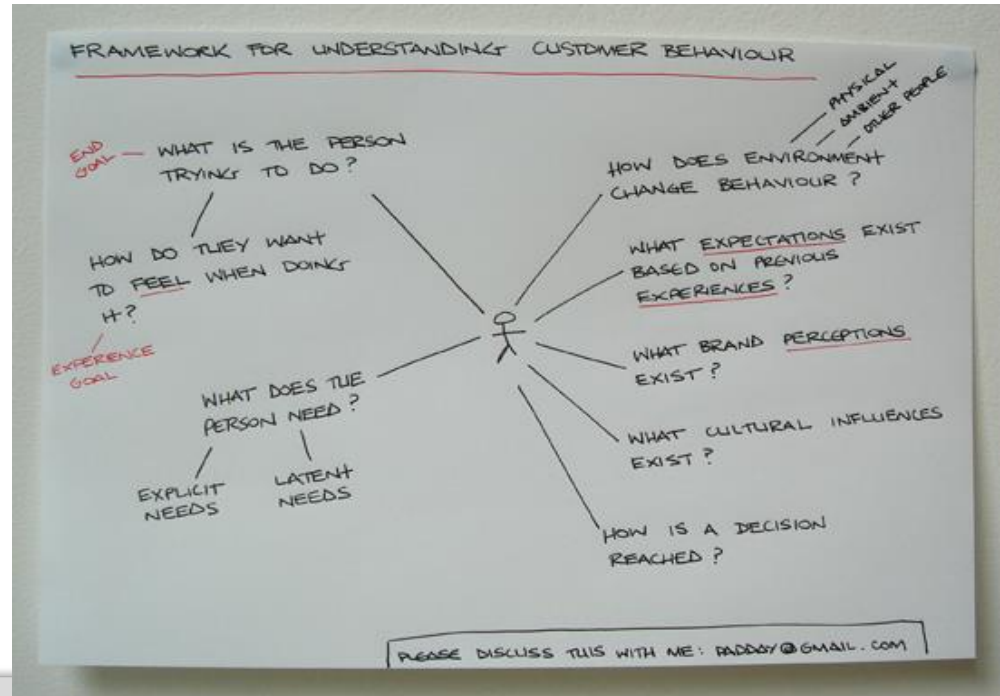 FRAMEWORK FOR UNDERSTANDING CUSTOMER BEHAVIOUR
END
GOAL
WHAT IS THE PERSON
TRYING TO DO?
HOW DO THEY WANT
TO FEEL WHEN DOING
IT?
EXPERENCE
GOAL
WHAT DOES THE
PERSON NEED?
EXPLICIT
NEEDS
LATENT
NEEDS
PHYSICAL
AMBIENT
OTHER PEOPLE
HOW DOES ENVIRONMENT
CHANGE BEHAVIOUR?
WHAT EXPECTATIONS EXIST
BASED ON PREVIOUS
EXPERIENCES?
WHAT BRAND PERCEPTIONS
EXIST?
WHAT CULTURAL INFLUENCES
EXIST?
HOW IS A DECISION
REACHED?
PLEASE DISCUSS THIS WITH ME: PADDAY@GMAIL.COM